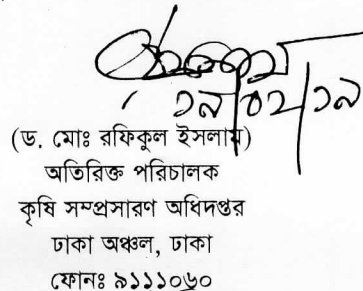 ১৯|০২|১৯
(ড. মোঃ রফিকুল ইসলাম)
অতিরিক্ত পরিচালক
কৃষি সম্প্রসারণ অধিদপ্তর
ঢাকা অঞ্চল, ঢাকা
ফোনঃ ৯১১১০৬০